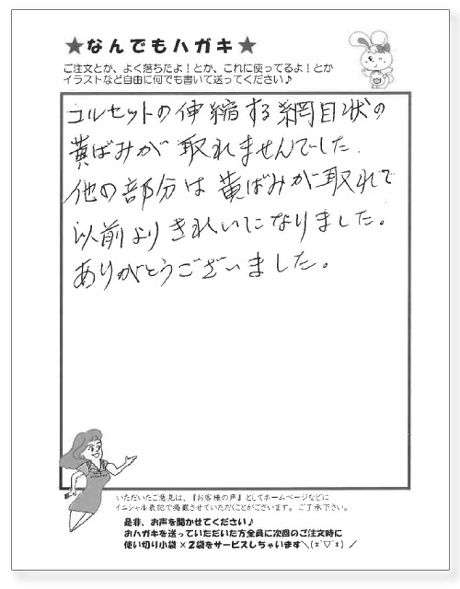 ★なんでもハガキ★
ご注文とか、よく落ちたよ！とか、これに使ってるよ！とか
イラストなど自由に何でも書いて送ってください♪
コルセットの伸縮する網目状の
黄ばみが取れませんでした.
他の部分は黄ばみが取れて
以前よりきれいになりました。
ありがとうございました。
いただいたご意見は、『お客様の声』としてホームページなどに
イニシャル表記で掲載させていただくことがございます。ご了承下さい。
是非、お声を聞かせてください♪
おハガキを送っていただいた方全員に次回のご注文時に
使い切り小袋×2袋をサービスしちゃいます＼(*ﾟ▽ﾟ*)／